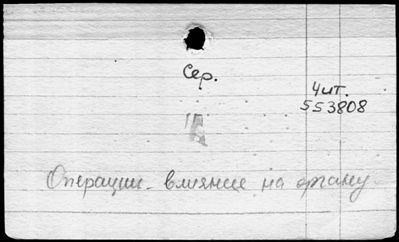 Сер.
Чит.
553808
Операции - влияние на